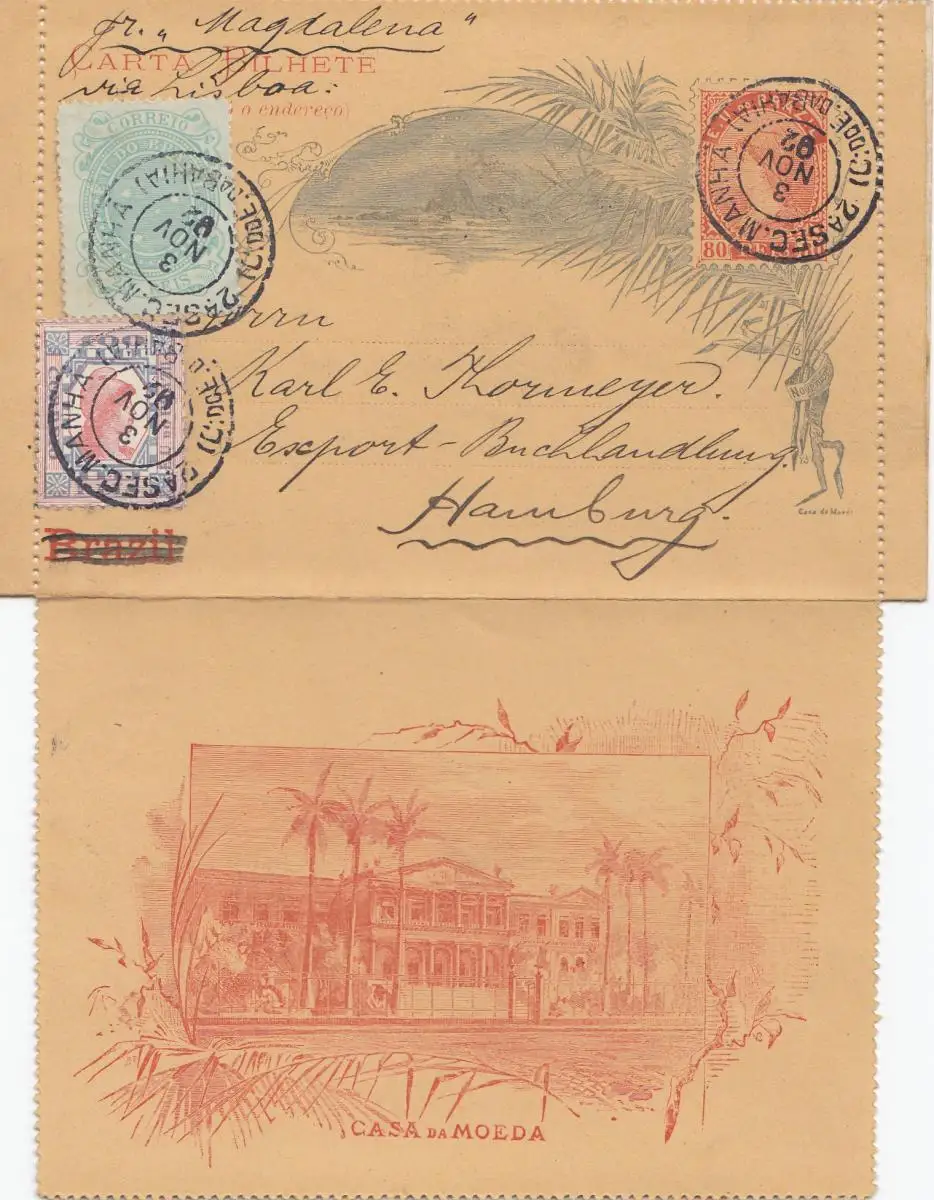 pr. „Magdalena“
CARTA BILHETE
via Lisboa:
o endereço)
CORREIO
2A SEC. MANHÃ (C: DOE. DA BAHIA)
3
NOV
92
80
2A SEC. MANHÃ (C: DOE. DA BAHIA)
3
NOV
92
2A SEC. MANHÃ
3
NOV
92
Herrn
Karl E. Kormeyer.
Export-Buchhandlung.
Hamburg.
Brazil
Casa da Moeda
CASA DA MOEDA